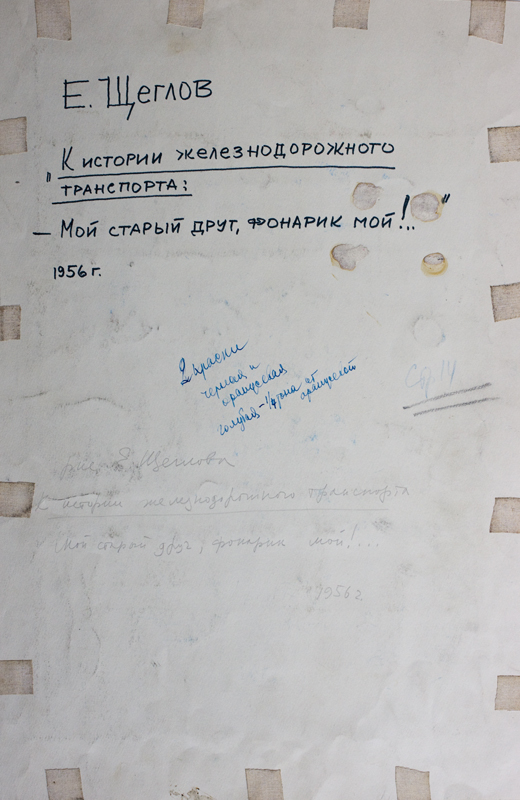 Е. Щеглов
"К истории железнодорожного
транспорта:
— Мой старый друг, фонарик мой!.."
1956 г.
2 краски
черная и
оранжевая
голубая - 1/4 тона от
оранжевой
Стр 14
Е. Щеглова
К истории железнодорожного транспорта
Мой старый друг, фонарик мой!...
1956 г